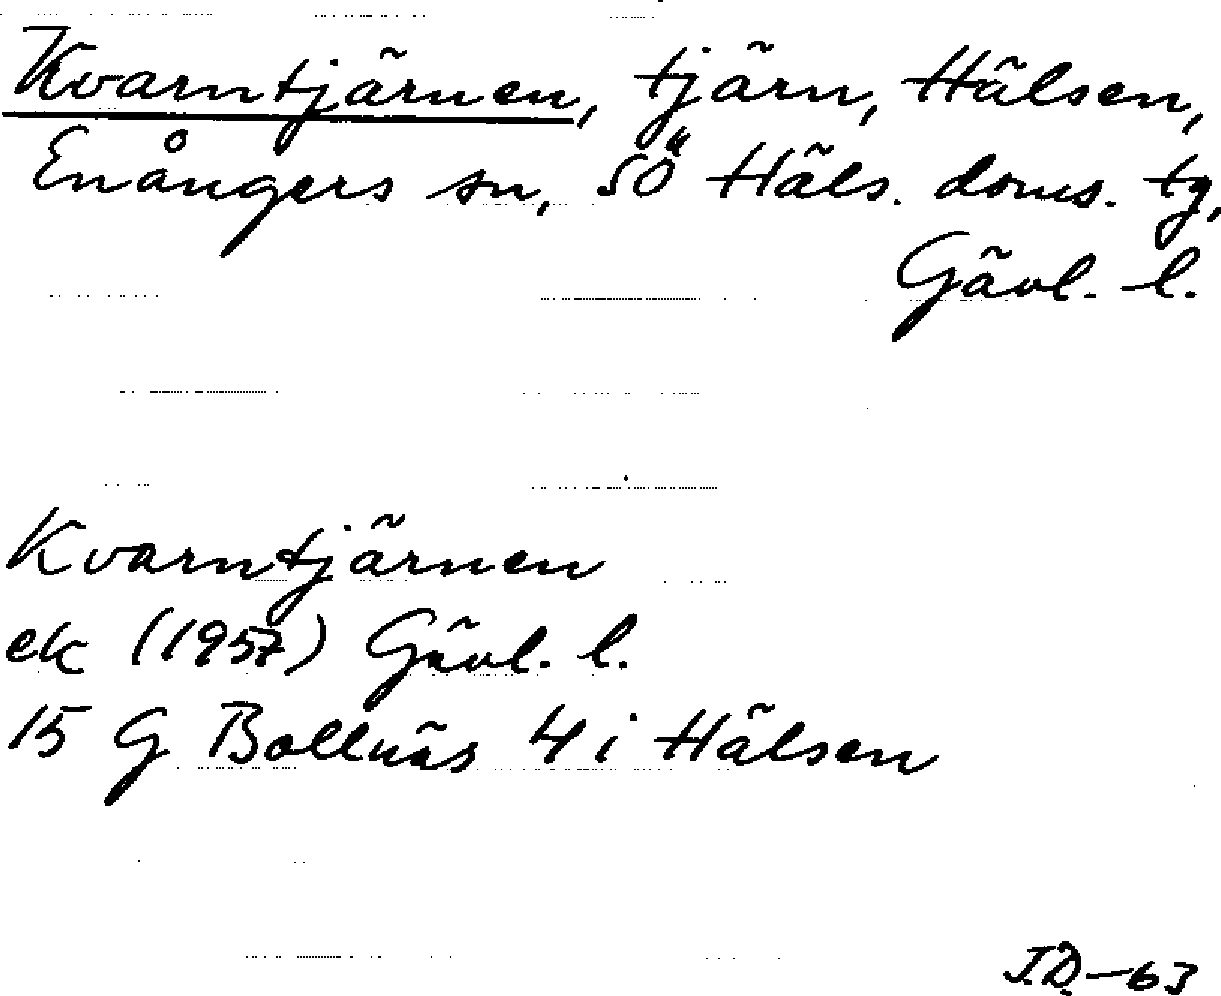 Kvarntjärnen, tjärn, Hälsen,
Enångers sn, SÖ Häls. doms. tg,
Gävl. l.
Kvarntjärnen
ek (1957) Gävl. l.
15 G Bollnäs 4 i Hälsen
J.D.-63